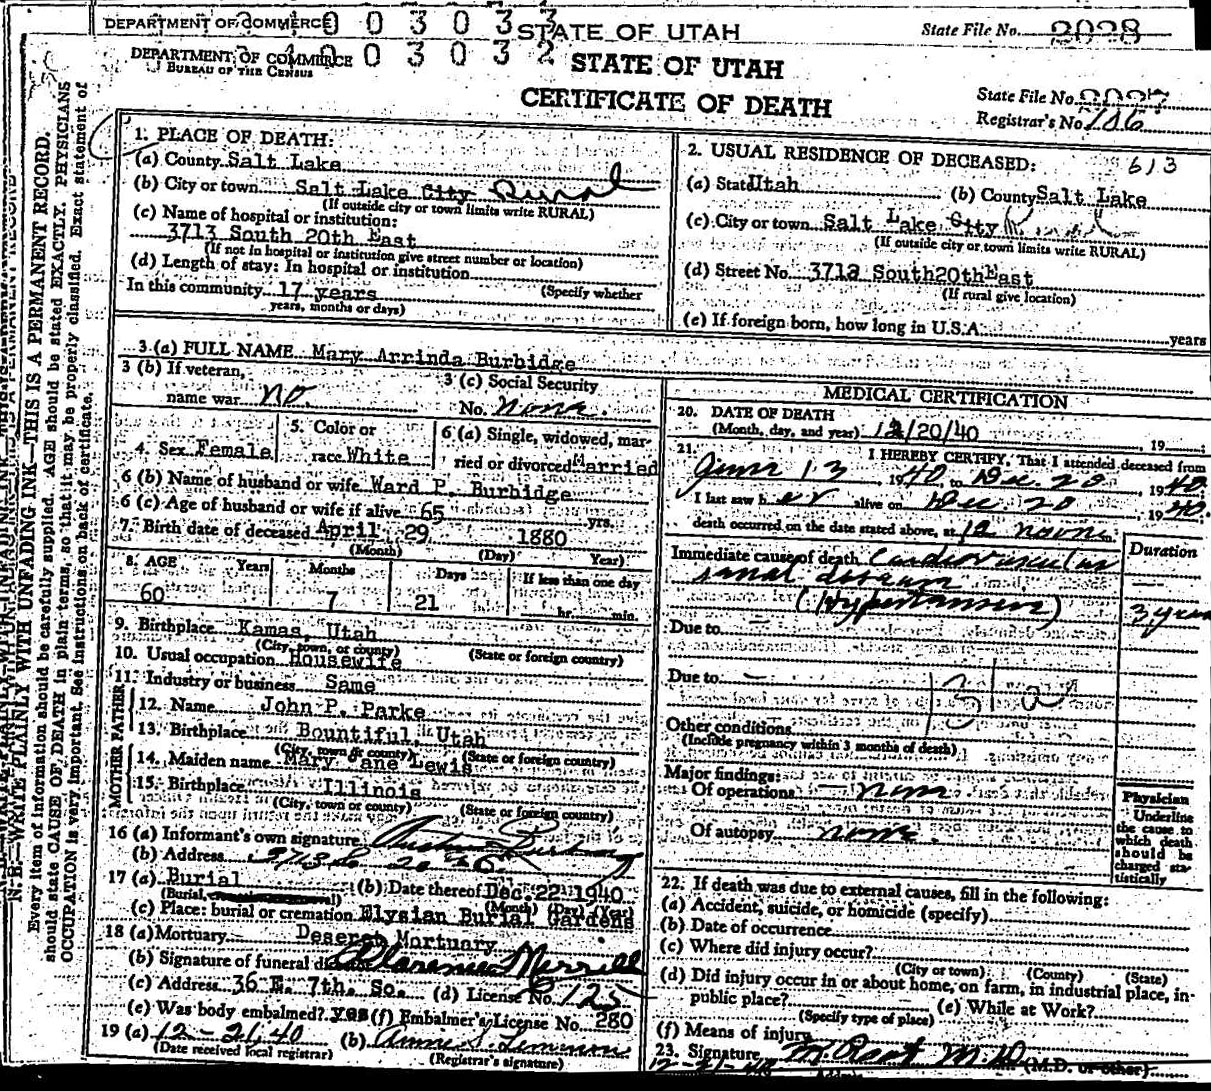 DEPARTMENT OF COMMERCE 0 0 3 0 3 3 STATE OF UTAH State File No. 2028
DEPARTMENT OF COMMERCE 0 0 3 0 3 2 STATE OF UTAH
BUREAU OF THE CENSUS
CERTIFICATE OF DEATH State File No. 2027
Registrar's No. 186
N. B.—WRITE PLAINLY WITH UNFADING INK—THIS IS A PERMANENT RECORD.
Every item of information should be carefully supplied. AGE should be stated EXACTLY. PHYSICIANS
should state CAUSE OF DEATH in plain terms, so that it may be properly classified. Exact statement of
OCCUPATION is very important. See instructions on back of certificate.
1. PLACE OF DEATH:
(a) County Salt Lake
(b) City or town Salt Lake City Rural
(If outside city or town limits write RURAL)
(c) Name of hospital or institution:
3713 South 20th East
(If not in hospital or institution give street number or location)
(d) Length of stay: In hospital or institution
(Specify whether
In this community 17 years
years, months or days)
2. USUAL RESIDENCE OF DECEASED: 613
(a) State Utah (b) County Salt Lake
(c) City or town Salt Lake City
(If outside city or town limits write RURAL)
(d) Street No. 3713 South 20th East
(If rural give location)
(e) If foreign born, how long in U.S.A. years
3 (a) FULL NAME Mary Arrinda Burbidge
3 (b) If veteran, name war no
3 (c) Social Security No. none.
4. Sex Female
5. Color or race White
6 (a) Single, widowed, married or divorced Married
6 (b) Name of husband or wife Ward P. Burbidge
6 (c) Age of husband or wife if alive 65 yrs.
7. Birth date of deceased April 29 1880
(Month) (Day) Year)
8. AGE Years Months Days If less than one day
60 7 21 hr. min.
9. Birthplace Kamas, Utah
(City, town, or county) (State or foreign country)
10. Usual occupation Housewife
11. Industry or business Same
FATHER
12. Name John P. Parke
13. Birthplace Bountiful, Utah
(City, town or county) (State or foreign country)
MOTHER
14. Maiden name Mary Jane Lewis
15. Birthplace Illinois
(City, town or county) (State or foreign country)
16 (a) Informant's own signature
(b) Address 3713 So 20th E.
17 (a) Burial (b) Date thereof Dec 22 1940
(Burial, (Month) (Day) (Year)
(c) Place: burial or cremation Elysian Burial Gardens
18 (a) Mortuary Deseret Mortuary
(b) Signature of funeral Clarence Merrill
(c) Address 36 E. 7th. So. (d) License No. 125
(e) Was body embalmed? yes (f) Embalmer's License No. 280
19 (a) 12-21,40 (b)
(Date received local registrar) (Registrar's signature)
MEDICAL CERTIFICATION
20. DATE OF DEATH
(Month, day, and year) 12/20/40 19
21. I HEREBY CERTIFY, That I attended deceased from
June 13 1940, to Dec. 20, 1940
I last saw her alive on Dec. 20 1940.
death occurred on the date stated above, at 12 noon
Duration
Immediate cause of death Cardiovascular
renal disease
(Hypertensive) 3 years
Due to
Due to
131a
Other conditions
(Include pregnancy within 3 months of death)
Major findings:
Of operations none
Of autopsy none.
Physician
Underline
the cause to
which death
should be
charged sta-
tistically
22. If death was due to external causes, fill in the following:
(a) Accident, suicide, or homicide (specify)
(b) Date of occurrence
(c) Where did injury occur?
(City or town) (County) (State)
(d) Did injury occur in or about home, on farm, in industrial place, in-
public place? (e) While at Work?
(Specify type of place)
(f) Means of injury
23. Signature M.D. (M.D. or other)
12-21-40 Address